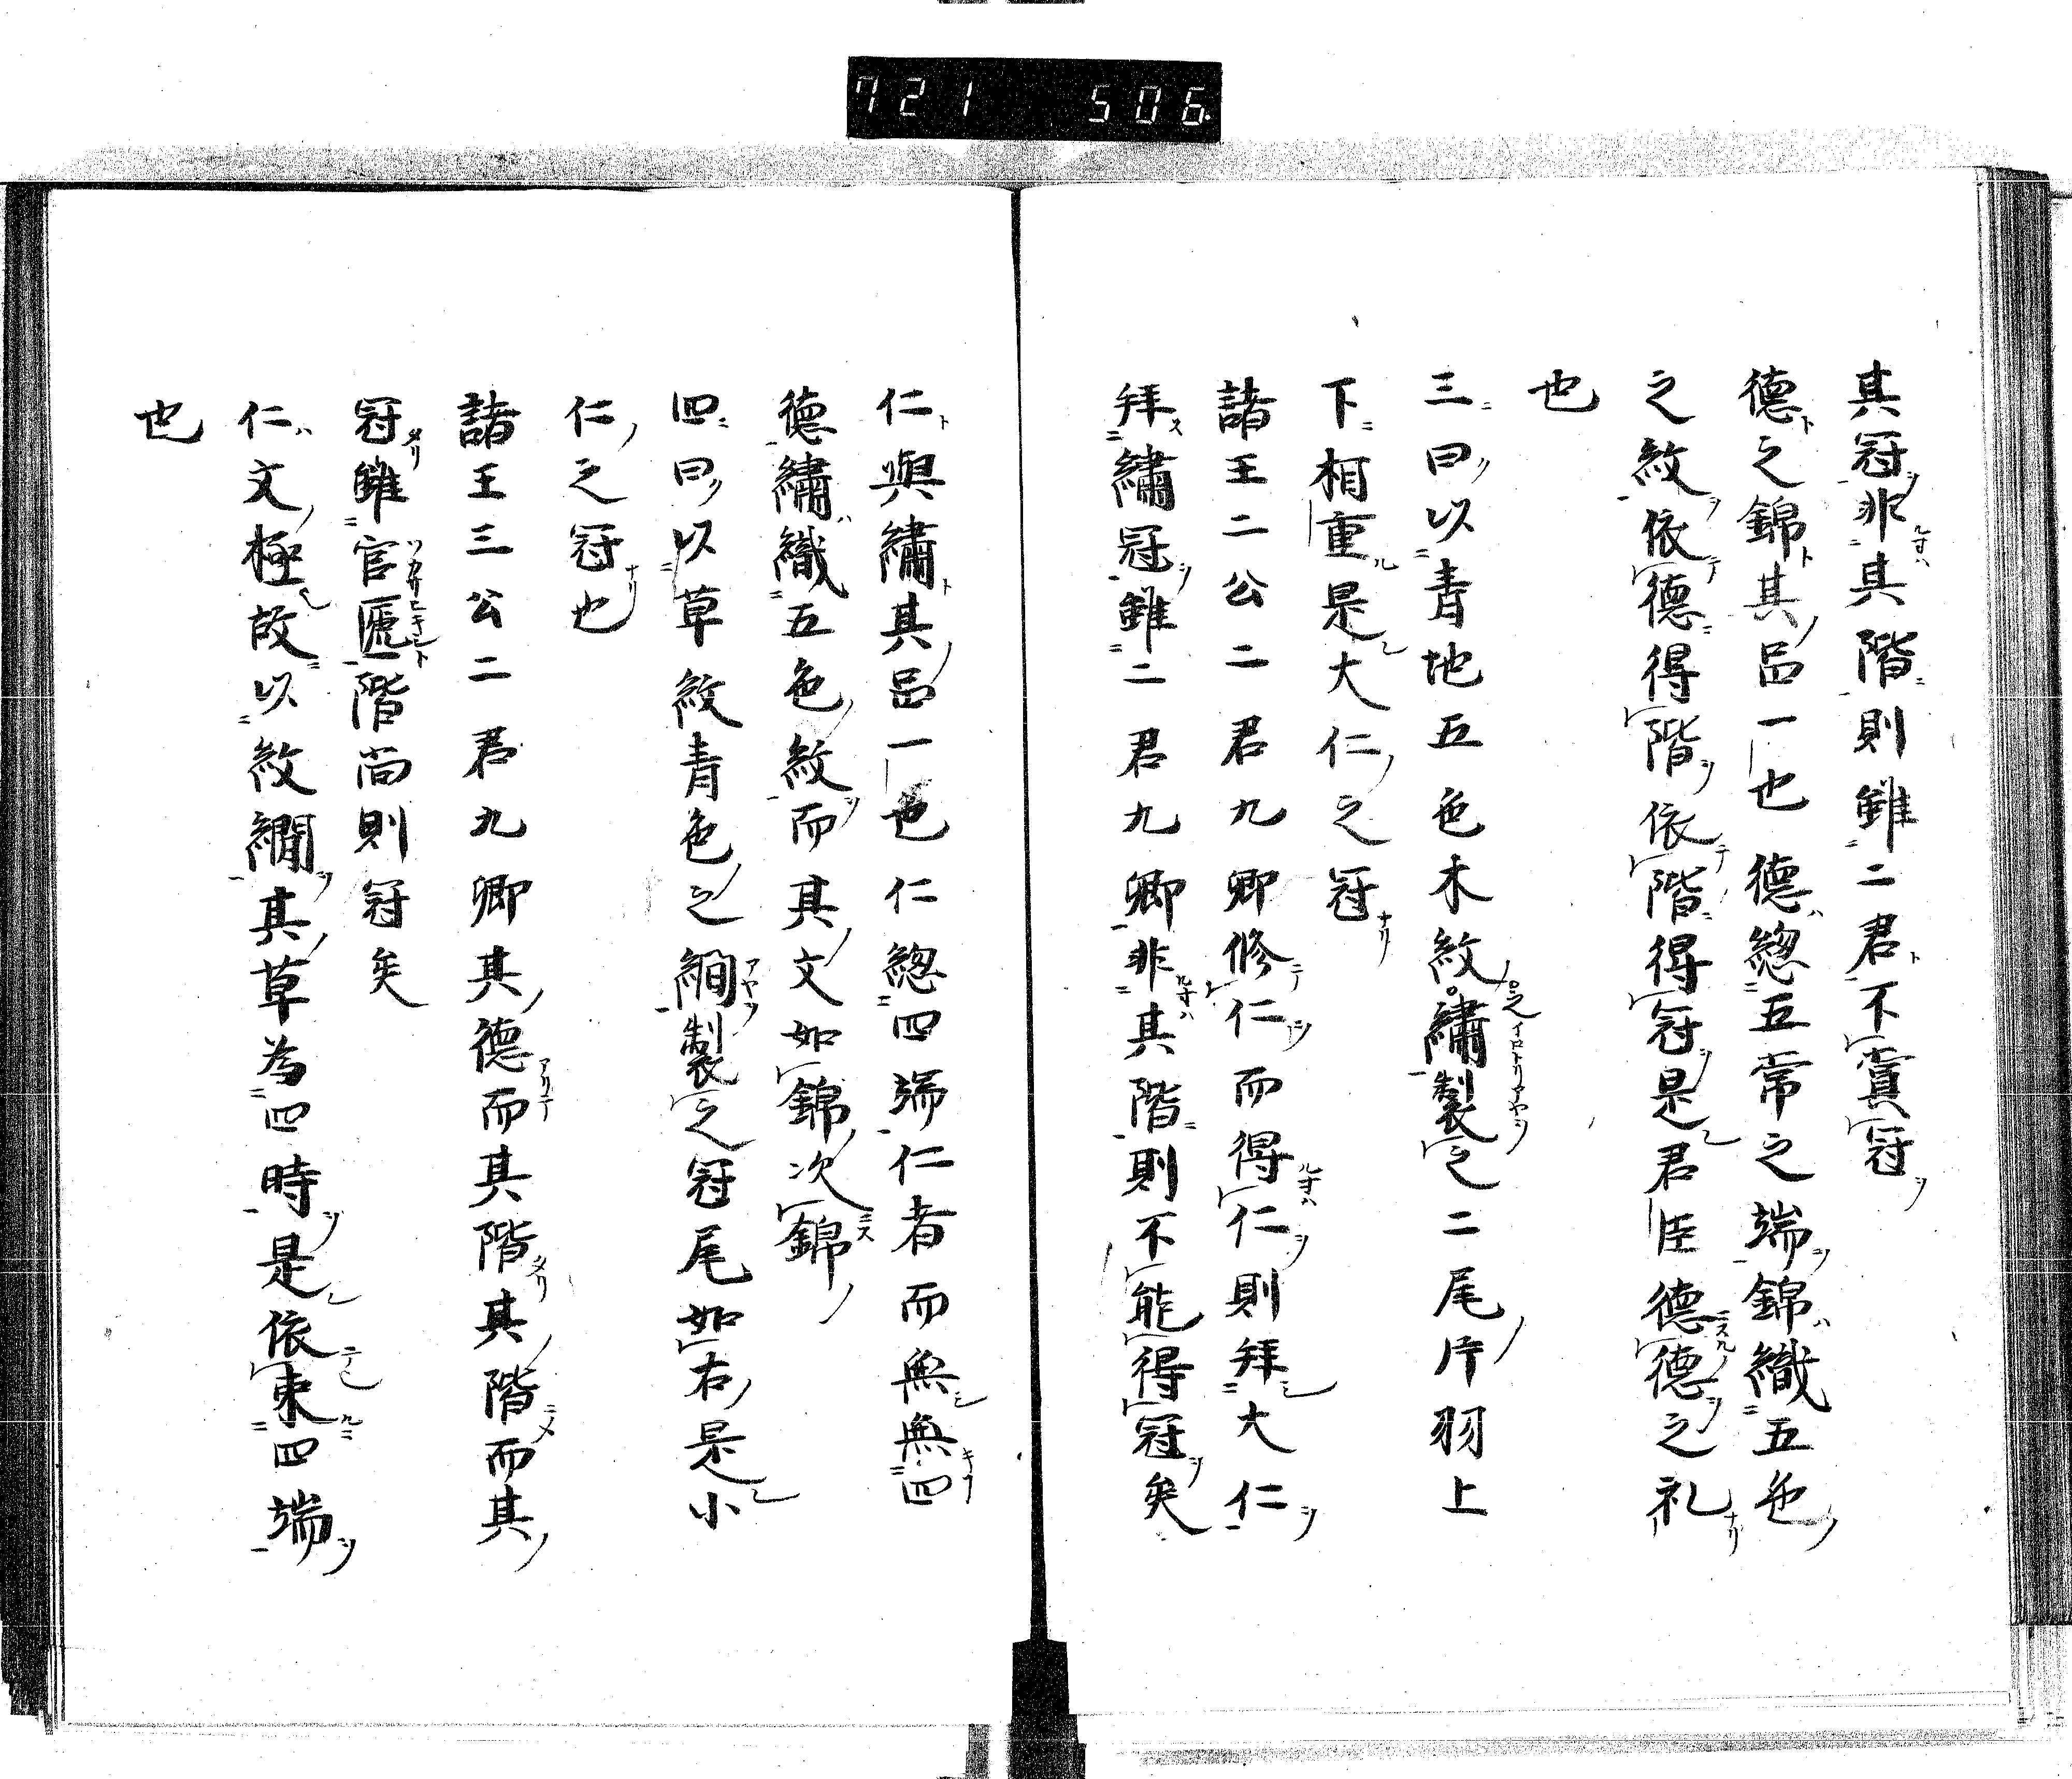 721 506
其冠非其階則雖二君不賞冠
德之錦其品一也德總五常之端錦織五色
之紋依德得階依階得冠是君臣德德之礼
也
三曰以青地五色木紋之繡製之二尾片羽上
下相重是大仁之冠
諸王二公二君九卿修仁而得仁則拜大仁
拜繡冠雖二君九卿非其階則不能得冠矣
仁與繡其品一也仁總四端仁者而無無四
德繡織五色紋而其文如錦次錦
四曰以草紋青色之繝製之冠尾如右是小
仁之冠也
諸王三公二君九卿其德而其階其階而其
冠雖官匹階尚則冠矣
仁文極故以紋繝其草為四時是依束四端
也